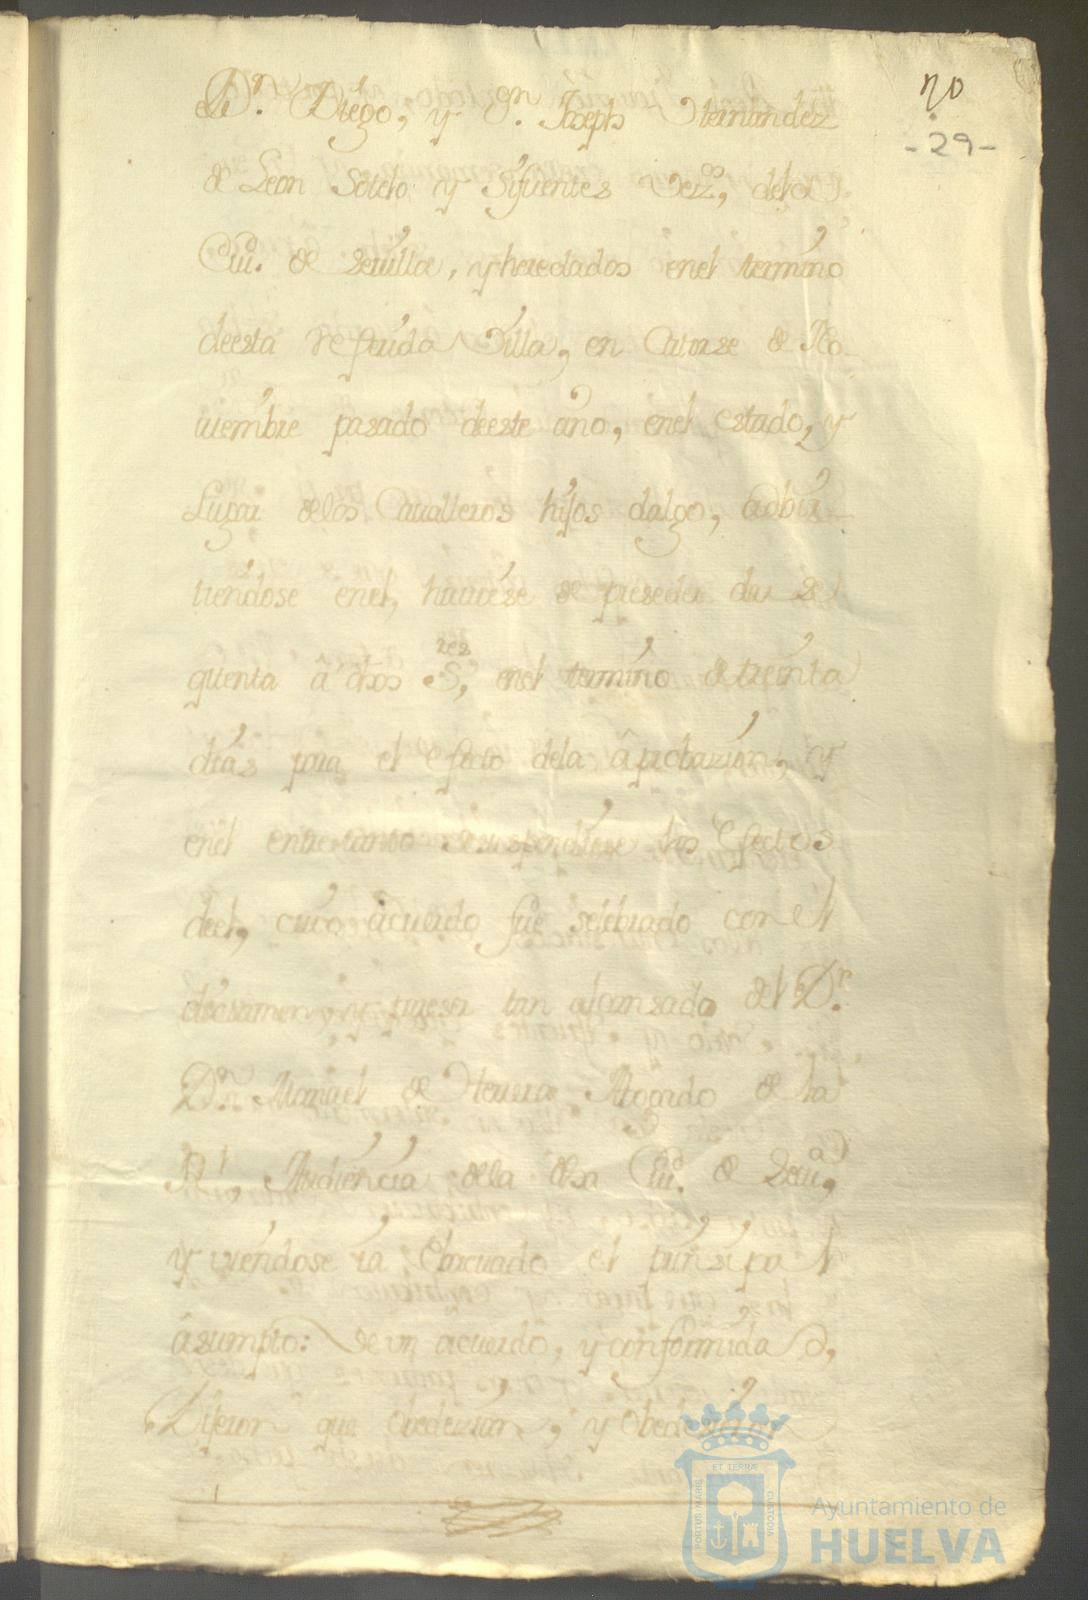 70
-29-
a Dn. Diego, y Dn. Joseph Hernandez
de Leon Sotelo y Sifuentes Vezos, dela
Ciud. de Sevilla, y heredados enel termino
deesta referida Villa, en Catorse de No-
viembre pasado deeste año, enel estado, y
Lugar delos Cavalleros hijos dalgo, adbir-
tiendose enel, haverse de preseder dar
quenta â dhos Sres, enel termino de treinta
dias para el efecto dela âprobazion, y
enel entretanto sesuspendiese los Efectos
deel, cuio âcuerdo fue selebrado con el
dictamen, y pareser tan alcansado del Dr.
Dn. Manuel de Herrera Abogado de la
Rl. Audiencia dela dha Ciud. de Seva,
y viendose ia Ebacuado el prinsipal
âsumpto: de un acuerdo, y conformidad,
Dijeron que Obedezian, y Obedezieron
ET TERRÆ
PORTUS MARIS
CUSTODIA
Ayuntamiento de
HUELVA